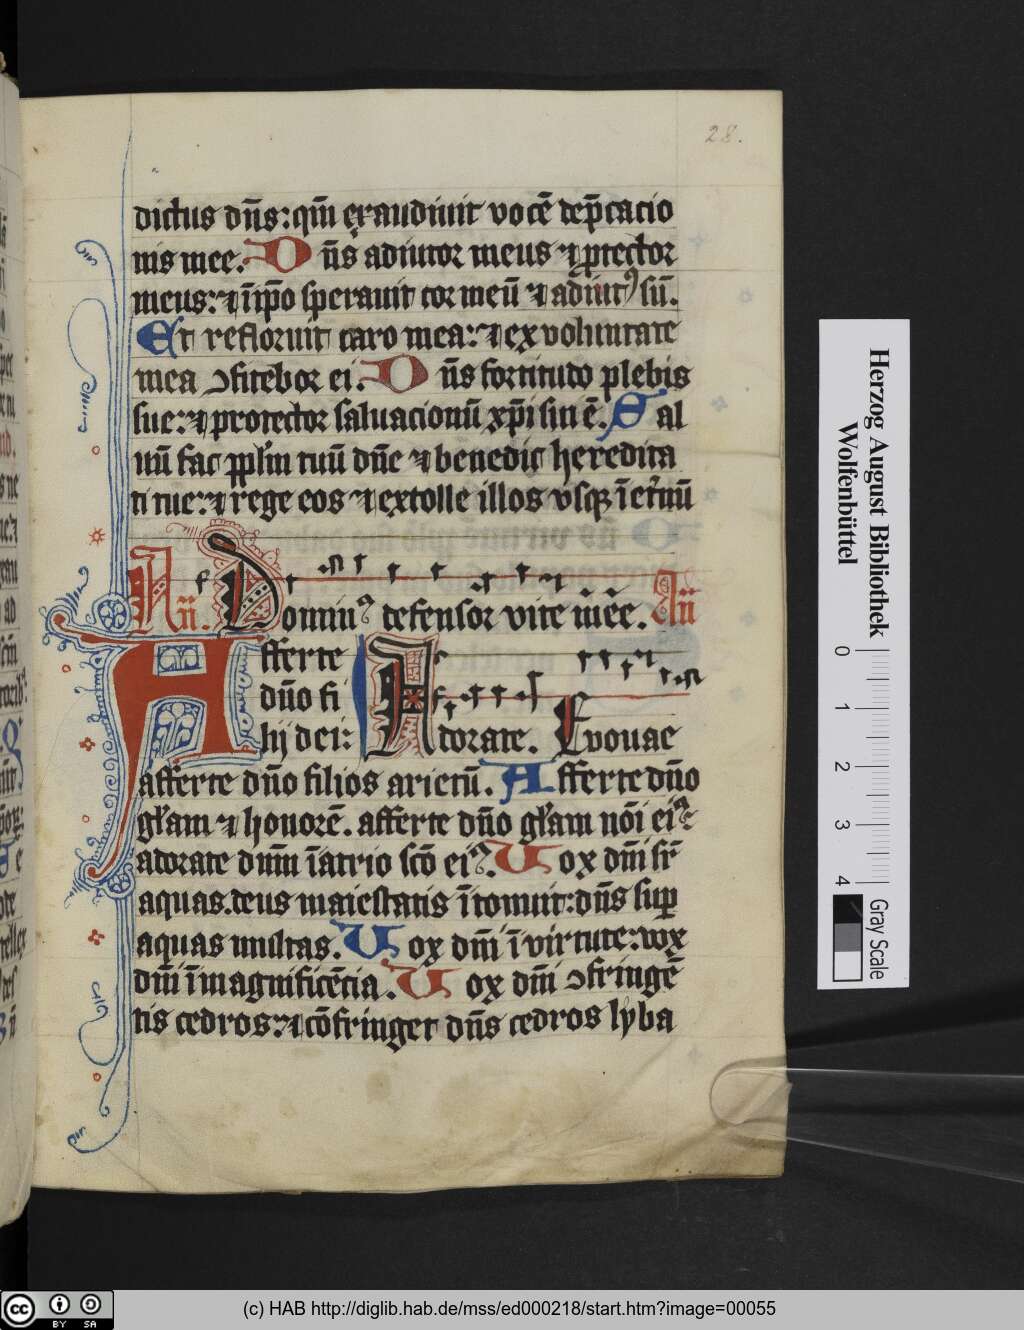 28.
dictus dn̄s: qm̄ exaudiuit vocē dep̄catio
nis mee. Dn̄s adiutor meus ⁊ ꝓtector
meus: ⁊ ī ip̄o sperauit cor meū ⁊ adiutꝰ sū.
Et refloruit caro mea: ⁊ ex voluntate
mea ꝯfitebor ei. Dn̄s fortitudo plebis
sue: ⁊ protector saluacionū xp̄i sui ē. Sal
uū fac ppl̄m tuū dn̄e ⁊ benedic heredita
ti tue: ⁊ rege eos ⁊ extolle illos vsqꝫ ī et̄nū
An̄. Dominꝰ defensor vite m̄ee. An̄
Afferte
dn̄o fi
lij dei: Adorate. Euouae
afferte dn̄o filios arietū. Afferte dn̄o
gl̄am ⁊ honorē. afferte dn̄o gl̄am nōi eiꝰ:
adorate dnm̄ ī atrio sc̄o eiꝰ. Uox dn̄i sr̄
aquas. deus maiestatis ītonuit: dn̄s suꝑ
aquas multas. Uox dn̄i ī virtute: vox
dn̄i ī magnificēcia. Uox dn̄i ꝯfringē
tis cedros: ⁊ cōfringet dn̄s cedros lyba
Herzog August Bibliothek
Wolfenbüttel
0 1 2 3 4
Gray Scale
cc BY SA
(c) HAB http://diglib.hab.de/mss/ed000218/start.htm?image=00055